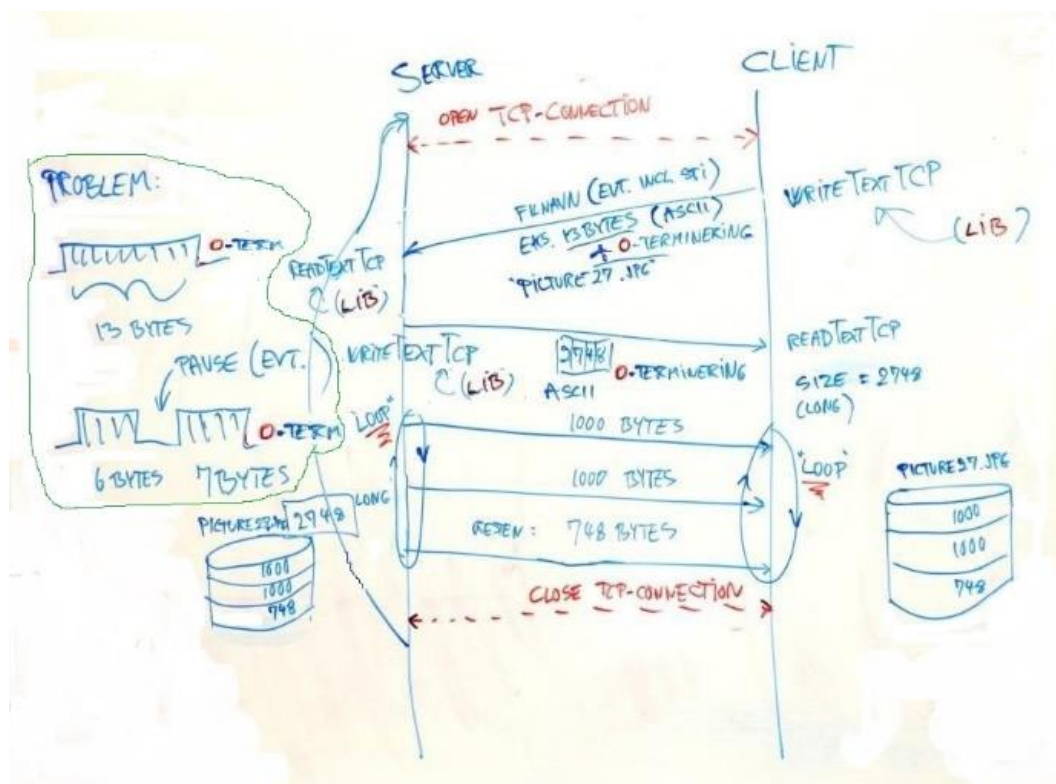 SERVER
CLIENT
OPEN TCP-CONNECTION
PROBLEM:
0-TERM
13 BYTES
PAUSE (EVT.
0-TERM
6 BYTES 7 BYTES
FILNAVN (EVT. INCL STI)
EKS. 13 BYTES (ASCII)
+ 0-TERMINERING
"PICTURE 27.JPG"
WRITE TEXT TCP
(LIB)
READ TEXT TCP
(LIB)
WRITE TEXT TCP
(LIB)
2748
ASCII
0-TERMINERING
READ TEXT TCP
SIZE = 2748
(LONG)
"LOOP"
1000 BYTES
1000 BYTES
748 BYTES
"LOOP"
2748
LONG
1000
1000
748
PICTURE27.JPG
1000
1000
748
CLOSE TCP-CONNECTION